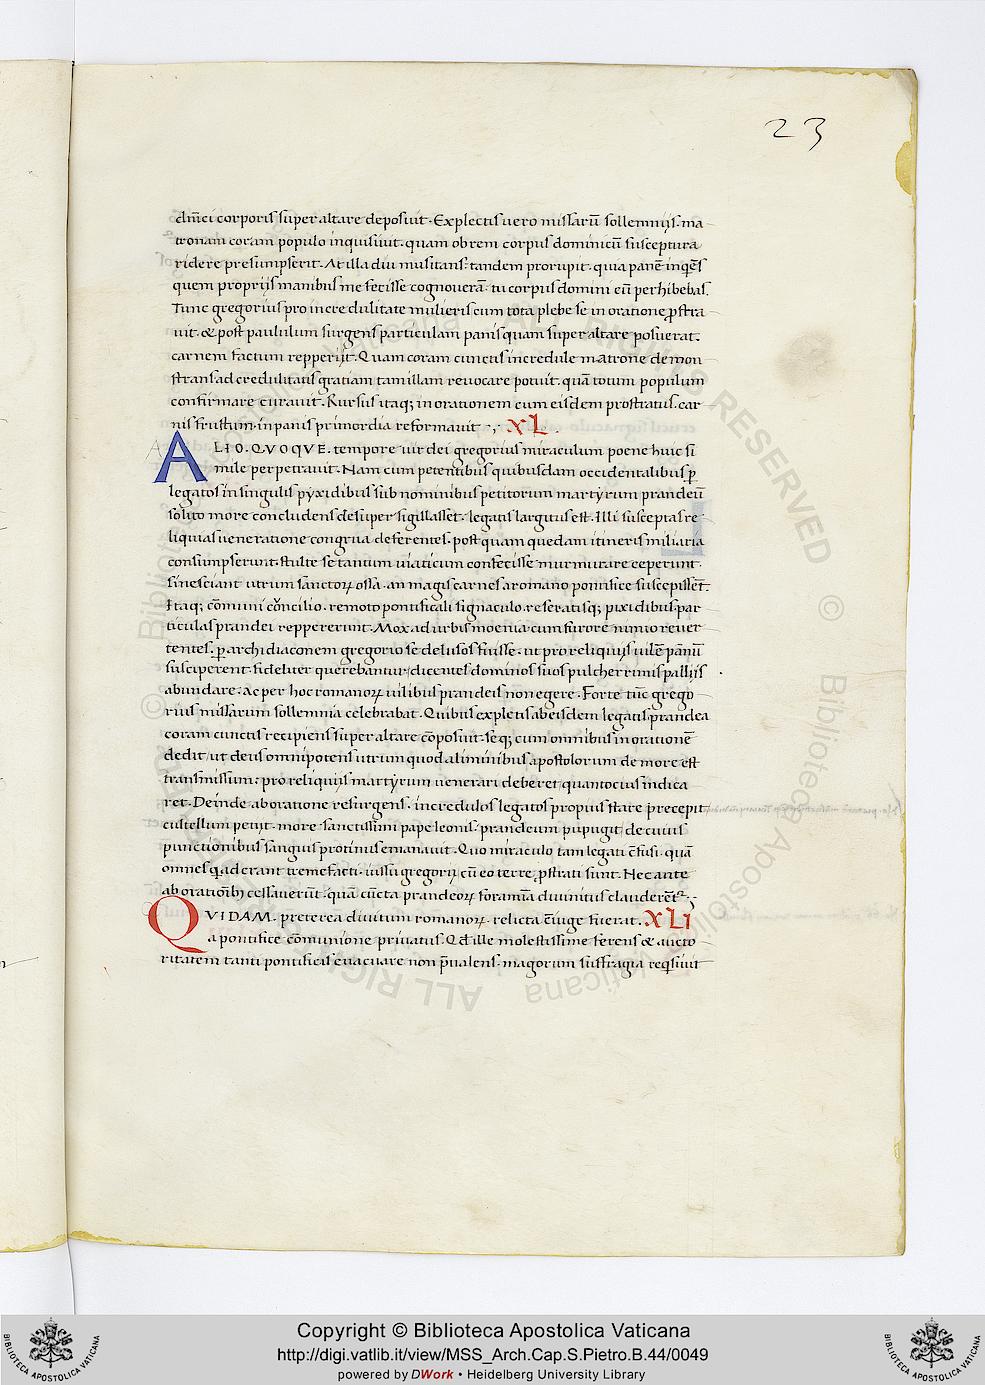 23
dn̄ici corporis super altare deposuit. Explectis uero missarū sollemnijs. ma
tronam coram populo inquisiuit. quam ob rem corpus dominicū susceptura
ridere presumpserit. At illa diu musitans: tandem prorupit. quia panē inqēs
quem proprijs manibus me fecisse cognouerā: tu corpus domini eū perhibebas.
Tunc gregorius pro incredulitate mulieris cum tota plebe se in oratione ꝓstra
uit. & post paululum surgens particulam panis quam super altare posuerat.
carnem factum repperijt. Quam coram cunctis incredule matrone demon
strans ad credulitatis gratiam tam illam reuocare potuit. quā totum populum
confirmare curauit. Rursus itaq; in orationem cum eisdem prostratus. car
nis frustum in panis primordia reformauit. XL.
ALIO. QVOQVE. tempore uir dei gregorius miraculum poene huic si
mile perpetrauit. Nam cum petentibus quibusdam occidentalibus ꝑ
legatos in singulis pyxidibus sub nominibus petitorum martyrum prandeū
solito more concludens desuper sigillasset. legatis largitus est. Illi susceptas re
liquias ueneratione congrua deferentes. post quam quedam itineris miliaria
consumpserunt. stulte se tantum uiaticum confecisse murmurare ceperunt.
si nesciant utrum sanctoꝝ ossa. an magis carnes a romano pontifice suscepissēt.
Itaq; cōmuni cōncilio. remoto pontificali signaculo. reseratisq; pixidibus par
ticulas prandei reppererunt. Mox ad urbis moenia cum furore nimio reuer
tentes. ꝑ archidiaconem gregorio se delusos fuisse. ut pro reliquijs uilē pānū
susciperent. fideliter querebantur/ dicentes dominos suos pulcherrimis pallijs
abundare. Ac per hoc romanoꝝ uilibus prandeis non egere. Forte tūc grego
rius missarum sollemnia celebrabat. Quibus expletis ab eisdem legatis prandea
coram cunctis recipiens super altare cōposuit. seq; cum omnibus in orationē
dedit/ ut deus omnipotens utrum quod a liminibus apostolorum de more est
transmissum: pro reliquijs martyrum uenerari deberet quantocius indica
ret. Deinde ab oratione resurgens. incredulos legatos propius stare precepit/
custellum petijt. more sanctissimi pape leonis. prandeum pupugit/ de cuius
punctionibus sanguis protinus emanauit. Quo miraculo tam legati cēfusi. quā
omnes q aderant tremefacti. iussu gregorij cū eo terre ꝓstrati sunt. Nec ante
ab orationib; cessauerūt. quā cūcta prandeoꝝ foramīa diuinitus clauderētᷣ.
QVIDAM. preterea diuitum romanoꝝ. relicta cōiuge fuerat. XLI
a pontifice cōmunione priuatus. Qd̄ ille molestissime ferens & aucto
ritatem tanti pontificis euacuare non p̄ualens. magorum suffragia reqsiuit
© Biblioteca Apostolica Vaticana
ALL RIGHTS RESERVED
© Biblioteca Apostolica Vaticana
ALL RIGHTS RESERVED
BIBLIOTECA APOSTOLICA VATICANA
Copyright © Biblioteca Apostolica Vaticana
http://digi.vatlib.it/view/MSS_Arch.Cap.S.Pietro.B.44/0049
powered by DWork • Heidelberg University Library
BIBLIOTECA APOSTOLICA VATICANA